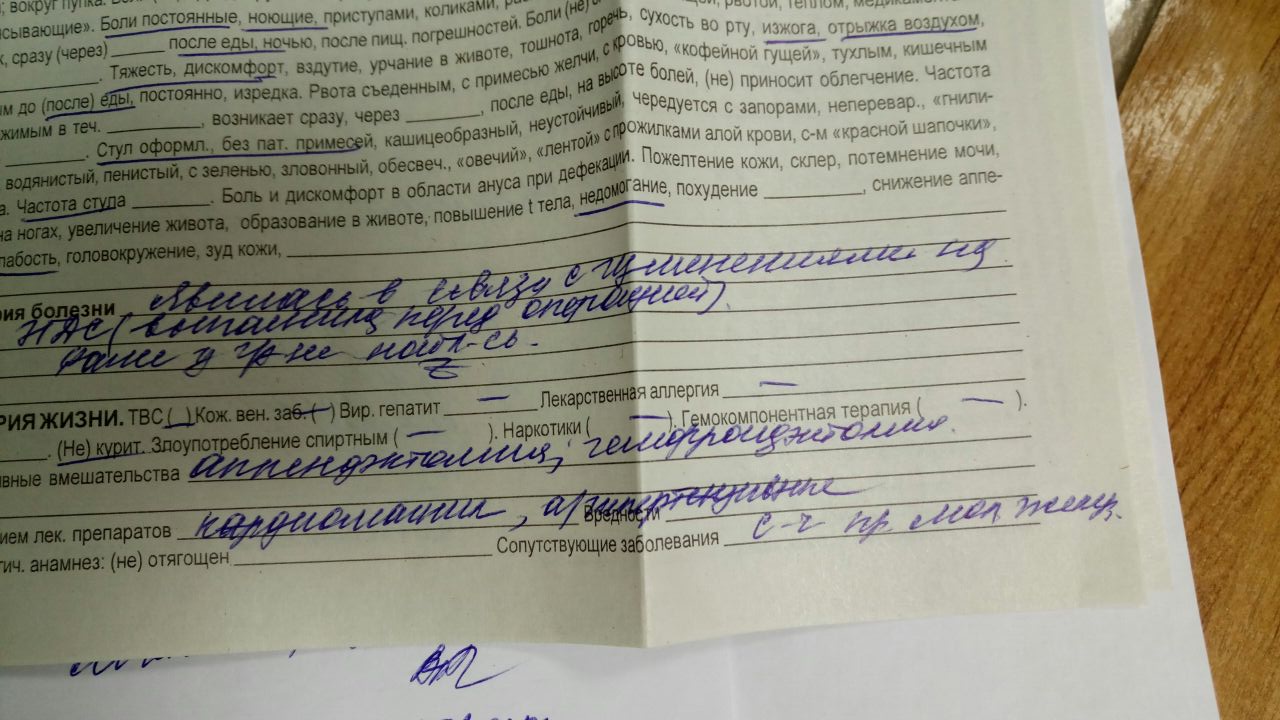 ; вокруг пупка.
исывающие». Боли постоянные, ноющие, приступами, коликами,
к, сразу (через) ______ после еды, ночью, после пищ. погрешностей. Боли (не)
сухость во рту, изжога, отрыжка воздухом,
______. Тяжесть, дискомфорт, вздутие, урчание в животе, тошнота, горечь,
ым до (после) еды, постоянно, изредка. Рвота съеденным, с примесью желчи, с кровью, «кофейной гущей», тухлым, кишечным
жимым в теч. ______, возникает сразу, через ______, после еды, на высоте болей, (не) приносит облегчение. Частота
______. Стул оформл., без пат. примесей, кашицеобразный, неустойчивый, чередуется с запорами, неперевар., «гнили-
водянистый, пенистый, с зеленью, зловонный, обесвеч., «овечий», «лентой» с прожилками алой крови, с-м «красной шапочки»,
а. Частота стула ______. Боль и дискомфорт в области ануса при дефекации. Пожелтение кожи, склер, потемнение мочи,
на ногах, увеличение живота, образование в животе, повышение t тела, недомогание, похудение ______, снижение аппе-
лабость, головокружение, зуд кожи, ______
рия болезни явилась в связи с изменениями на
ФГДС (выполнила перед операцией).
Ранее у г/э не набл-сь.
РИЯ ЖИЗНИ. ТВС (_) Кож. вен. заб. (–) Вир. гепатит — Лекарственная аллергия —
______. (Не) курит. Злоупотребление спиртным ( — ). Наркотики ( — ). Гемокомпонентная терапия ( — ).
ивные вмешательства аппендэктомия, геморроидэктомия.
ием лек. препаратов кардиомагнил, а/гипертензивные Вредности ______
гич. анамнез: (не) отягощен ______ Сопутствующие заболевания с-ч пр. мол. желез.